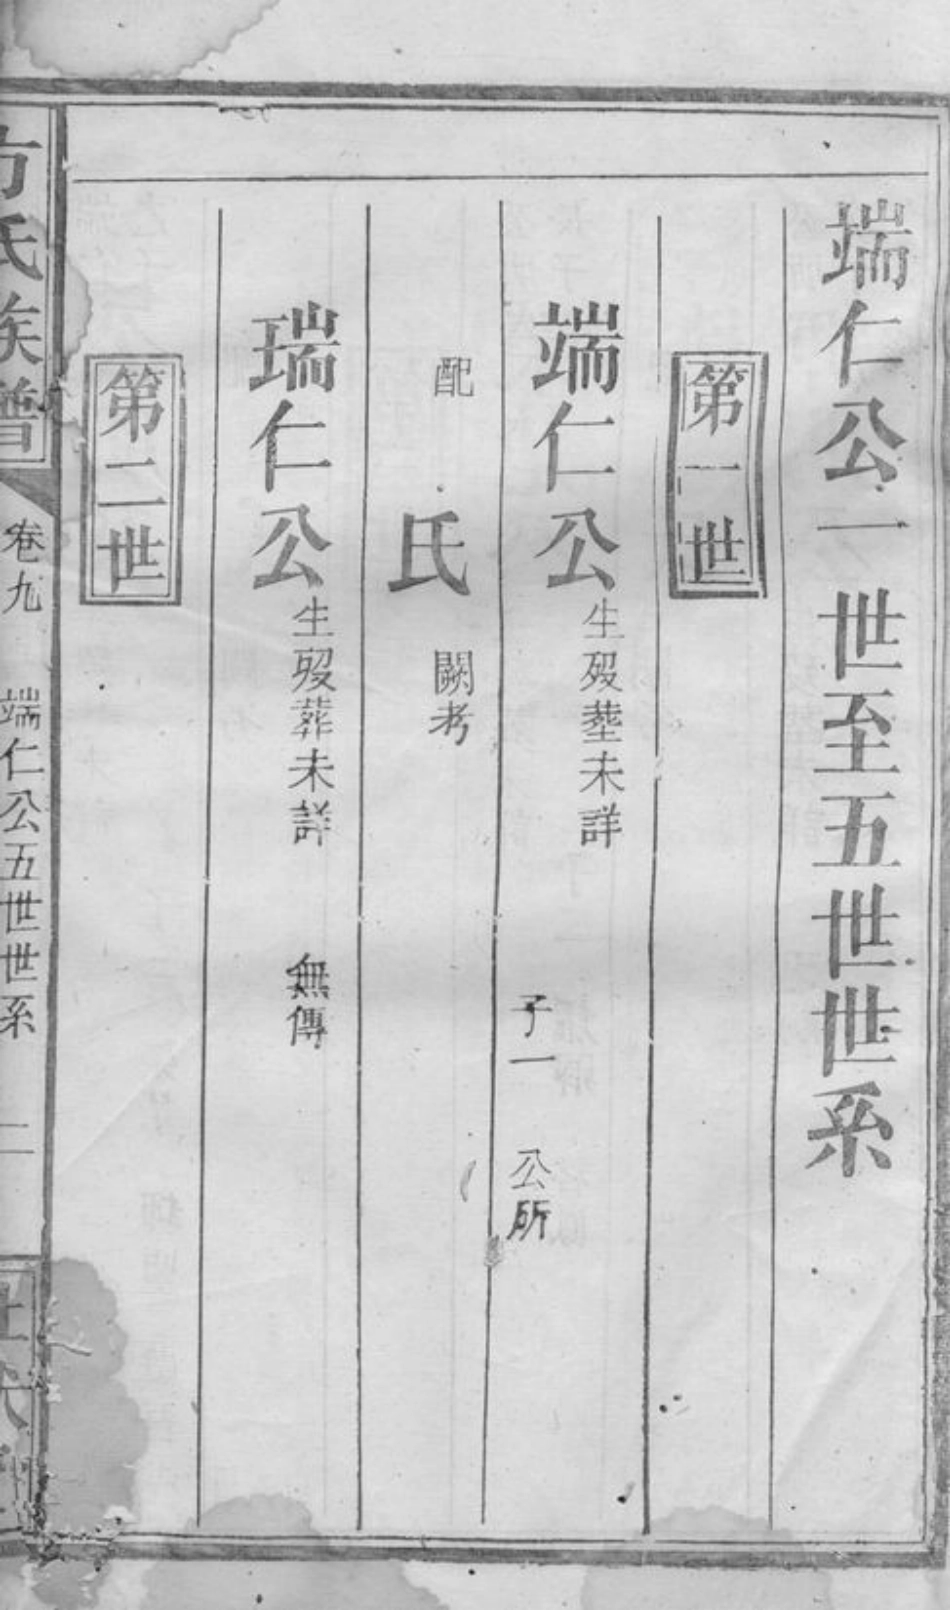 端仁公一世至五世世系
第一世
端仁公 生歿塟未詳 子一 公所
配 氏 闕考
瑞仁公 生歿葬未詳 無傳
第二世
方氏族譜 卷九 端仁公五世世系 二